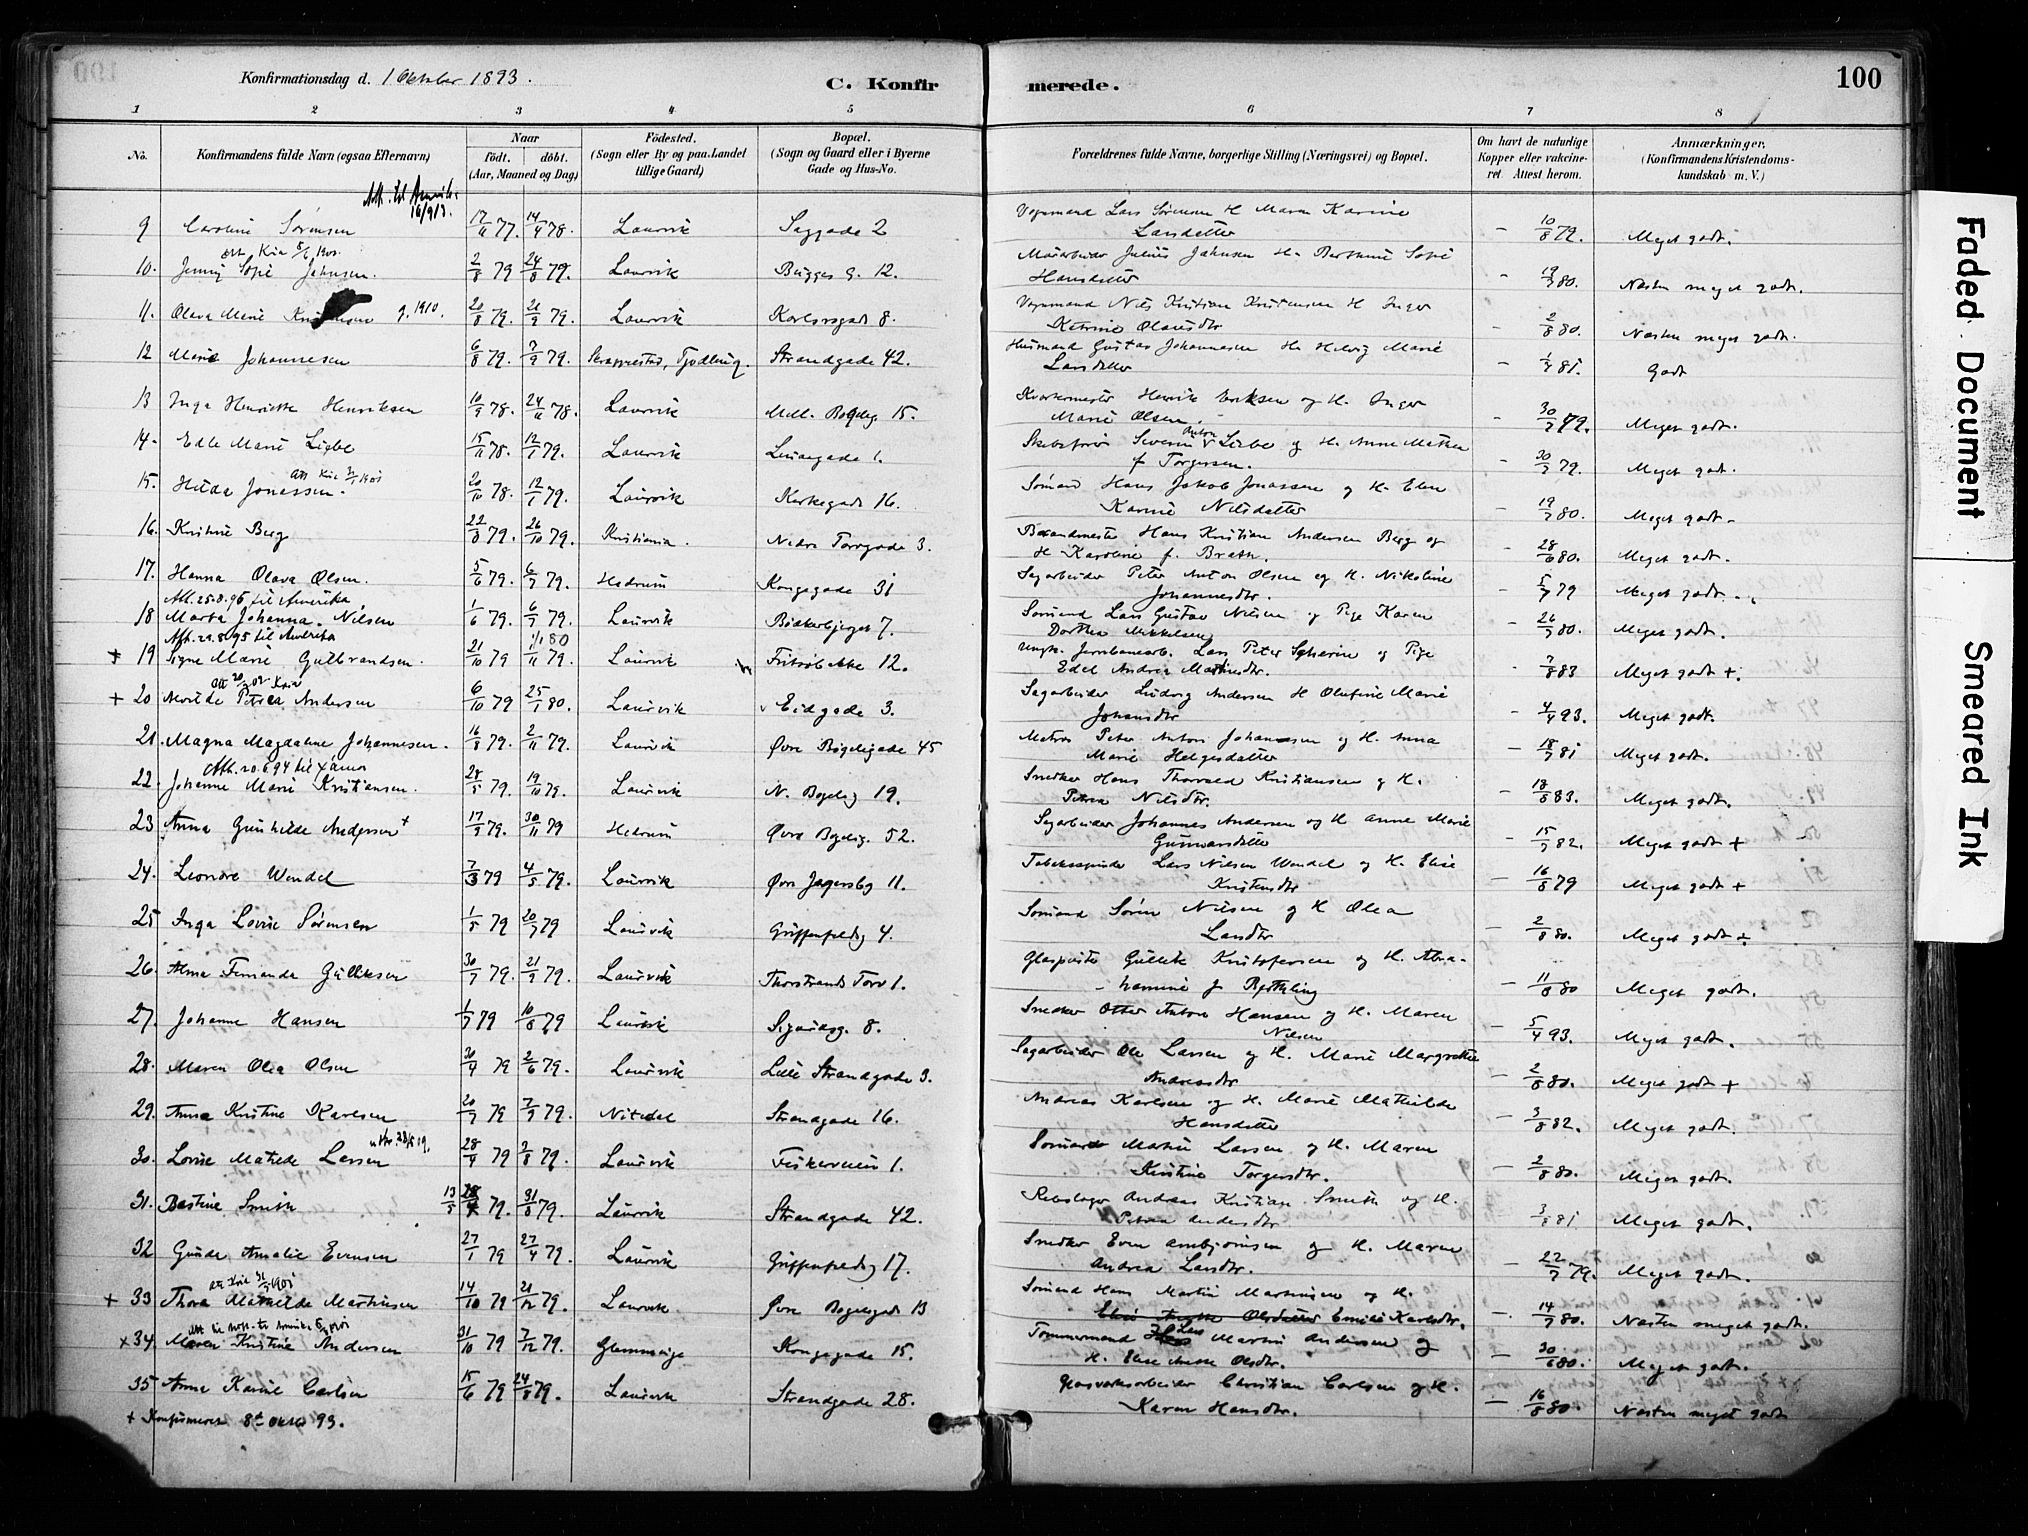 Konfirmationsdag d. 1 Oktober 1893.
C. Konfir
merede.
100
1 2 3 4 5 6 7 8
No.
Konfirmandens fulde Navn (ogsaa Efternavn)
Naar
födt. döbt.
(Aar, Maaned og Dag)
Födested.
(Sogn eller By og paa Landet
tillige Gaard)
Bopæl.
(Sogn og Gaard eller i Byerne
Gade og Hus-No.
Forældrenes fulde Navne, borgerlige Stilling (Næringsvei) og Bopæl.
Om havt de naturlige
Kopper eller vakcine-
ret. Attest herom.
Anmærkninger.
(Konfirmandens Kristendoms-
kundskab m. V.)
16/9 13.
9 Caroline Sørensen 17/11 77. 14/4 78. Laurvik Saggade 2 Vognmand Lars Sørensen H Maren Karine
Larsdatter – 10/8 79. Meget godt.
10. Jenny Sofie Johnsen. 2/8 79 24/8 79. Laurvik Bugges G. 12. Julius Johnsen H. Sofie
Hansdatter – 19/3 80. Næsten meget godt.
11. Olava Marie g. 1910. 20/8 79. 21/9 79. Laurvik Karlsrogade 8. Vognmand Nils Kristian Kristensen H Inger
Katrine Olausdtr – 2/8 80. Næsten meget godt.
12 Marie Johannesen 6/8 79. 7/9 79. Tjodling. Strandgade 42. Husmand Gustav Johannesen H. Helvig Marie
Larsdatter – 1/9 81. Godt
13 Inga Henriette Henriksen 10/9 78. 24/11 78. Laurvik Mell. Bøgelig. 15. Kvartermester Henrik Eriksen og H. Inger
Marie Olsen. – 30/7 79. Meget godt.
14. Edle Marie Liebe 15/11 78. 12/1 79. Laurvik Linaegade 1. Skibsfører Severin Anton Liebe og H. Anne Mathea
f Torgersen. – 30/7 79. Meget godt.
15. Hilda Jonassen. 20/10 78. 12/1 79. Laurvik Kirkegade 16. Sømand Hans Jakob Jonassen og H. Elen
Karine Nilsdatter – 19/3 80. Meget godt.
16. Kristine Berg 22/8 79. 26/10 79. Kristiania. Nedre Torvgade 3. Brandmester Hans Kristian Andersen Berg og
H Karoline f. Brath. – 28/6 80. Meget godt.
17. Hanna Olava Olsen. 5/6 79. 6/7 79. Hedrum Kongegade 31 Sagarbeider Peter Anton Olsen og H. Nikoline
Johannesdtr. – 5/7 79 Meget godt.
Afh. 25.8.96 til Amerika
18 Marta Johanna Nilsen 1/6 79. 6/7 79. Laurvik Bødkerbjerget 7. Sømand Lars Gustav Nilsen og Pige Karen
Dorthea Mikkelsen – 26/7 80. Meget godt.
Afh. 29.8.95 til Amerika
+ 19 Signe Marie Gulbrandsen. 21/10 79 1/1 80 /11 79. Laurvik Fritzøbakke 12. Ungk. Jernbanearb. Lars Peter og Pige
Edel Andrea Martinsdtr. – 7/8 83 Meget godt +.
+ 20 Petrea Andersen 6/10 79 25/1 80. Laurvik Eidgade 3. Sagarbeider Ludvig Andersen H Olufine Marie
Johansdtr – 4/4 93. Meget godt.
21. Magna Magdalene Johannesen. 16/8 79. 2/11 79. Laurvik Øvre Bøgeligade 45 Matros Peter Anton Johannesen og H. Anna
Marie Helgesdatter – 18/7 81 Meget godt.
Afh. 20.6.94 til
22. Johanne Marie Kristiansen. 28/5 79. 19/10 79. Laurvik N. Bøgelig 19. Snedker Hans Thorvald Kristiansen og H.
Petrea Nilsdtr. – 18/8 83. Meget godt.
23 Anna Gunhilde Andersen + 17/9 79. 30/11 79 Hedrum Øvre Bøgelig. 52. Sagarbeider Johannes Andersen og H Anne Marie
Gunnarsdatter – 15/7 82. Meget godt +
24. Leonore Wendel 7/3 79 4/5 79. Laurvik Øvre Jegersbg 11. Tobaksspinder Lars Nilsen Wendel og H. Elise
Kristensdtr – 16/8 79 Meget godt +
25 Inga Lovise Sørensen 1/5 79 20/7 79 Laurvik Griffenfeldsg 4. Sømand Søren Nilsen og H Olea
Larsdtr – 2/8 80. Meget godt +
26. Alma Fernanda Gulliksen 30/7 79. 21/9 79. Laurvik Thorstrands Torv 1. Glaspuster Gullik Kristofersen og H. Abra-
hamine f – 11/8 80 Meget godt.
27. Johanne Hansen 1/7 79 10/8 79 Laurvik Sigurdsg. 8. Snedker Otter Anton Hansen og H. Maren
Nilsen – 5/4 93. Meget godt.
28. Maren Olea Olsen 30/4 79 2/6 79. Laurvik Lille Strandgade 3. Sagarbeider Ole Larsen og H. Marie Margrethe
Andreasdtr – 2/8 80. Meget godt +
29. Anna Kristine Karlsen 20/7 79 7/9 79. Nitedal Strandgade 16. Andreas Karlsen og H. Marie Mathilde
Hansdatter – 3/8 82. Meget godt.
30. Lovise Matilde Larsen 28/4 79 3/8 79. Laurvik Fiskerveien 1. Sømand Martin Larsen og H. Maren
Kristine Torgersdtr. – 2/8 80. Meget godt.
31. Bastine Smith 13/5 79. 31/8 79. Laurvik Strandgade 42. Rebslager Andreas Kristian Smith og H.
Petrea Andersdtr – 3/8 81 Meget godt.
32 Gunda Amalie Evensen 27/1 79 27/4 79. Laurvik Griffenfeldsg 17. Snedker Even Arnbjørnsen og H. Maren
Andrea Larsdtr. – 22/7 79. Meget godt.
+ 33 Thora Mathilde Martinsen 14/10 79 21/12 79. Laurvik. Øvre Bøgeligade 13 Sømand Hans Martin Martinsen og H.
Emilie Karlsdtr. – 14/7 80. Næsten meget godt.
x 34. Maren Kristine Andersen 31/10 79 7/12 79. Glemminge Kongegade 15. Tømmermand Lars Martin Andersen og
H. Elise Anette Olsdtr. – 30/6 80. Meget godt.
35 Anna Karine Carlsen 15/6 79 24/8 79. Laurvik Strandgade 28. Glasværksarbeider Christian Carlsen og H.
Karen Hansdtr. – 16/8 80. Næsten meget godt
+ Konfirmeret 8de Oktbr 93.
Faded Document
Smeared Ink